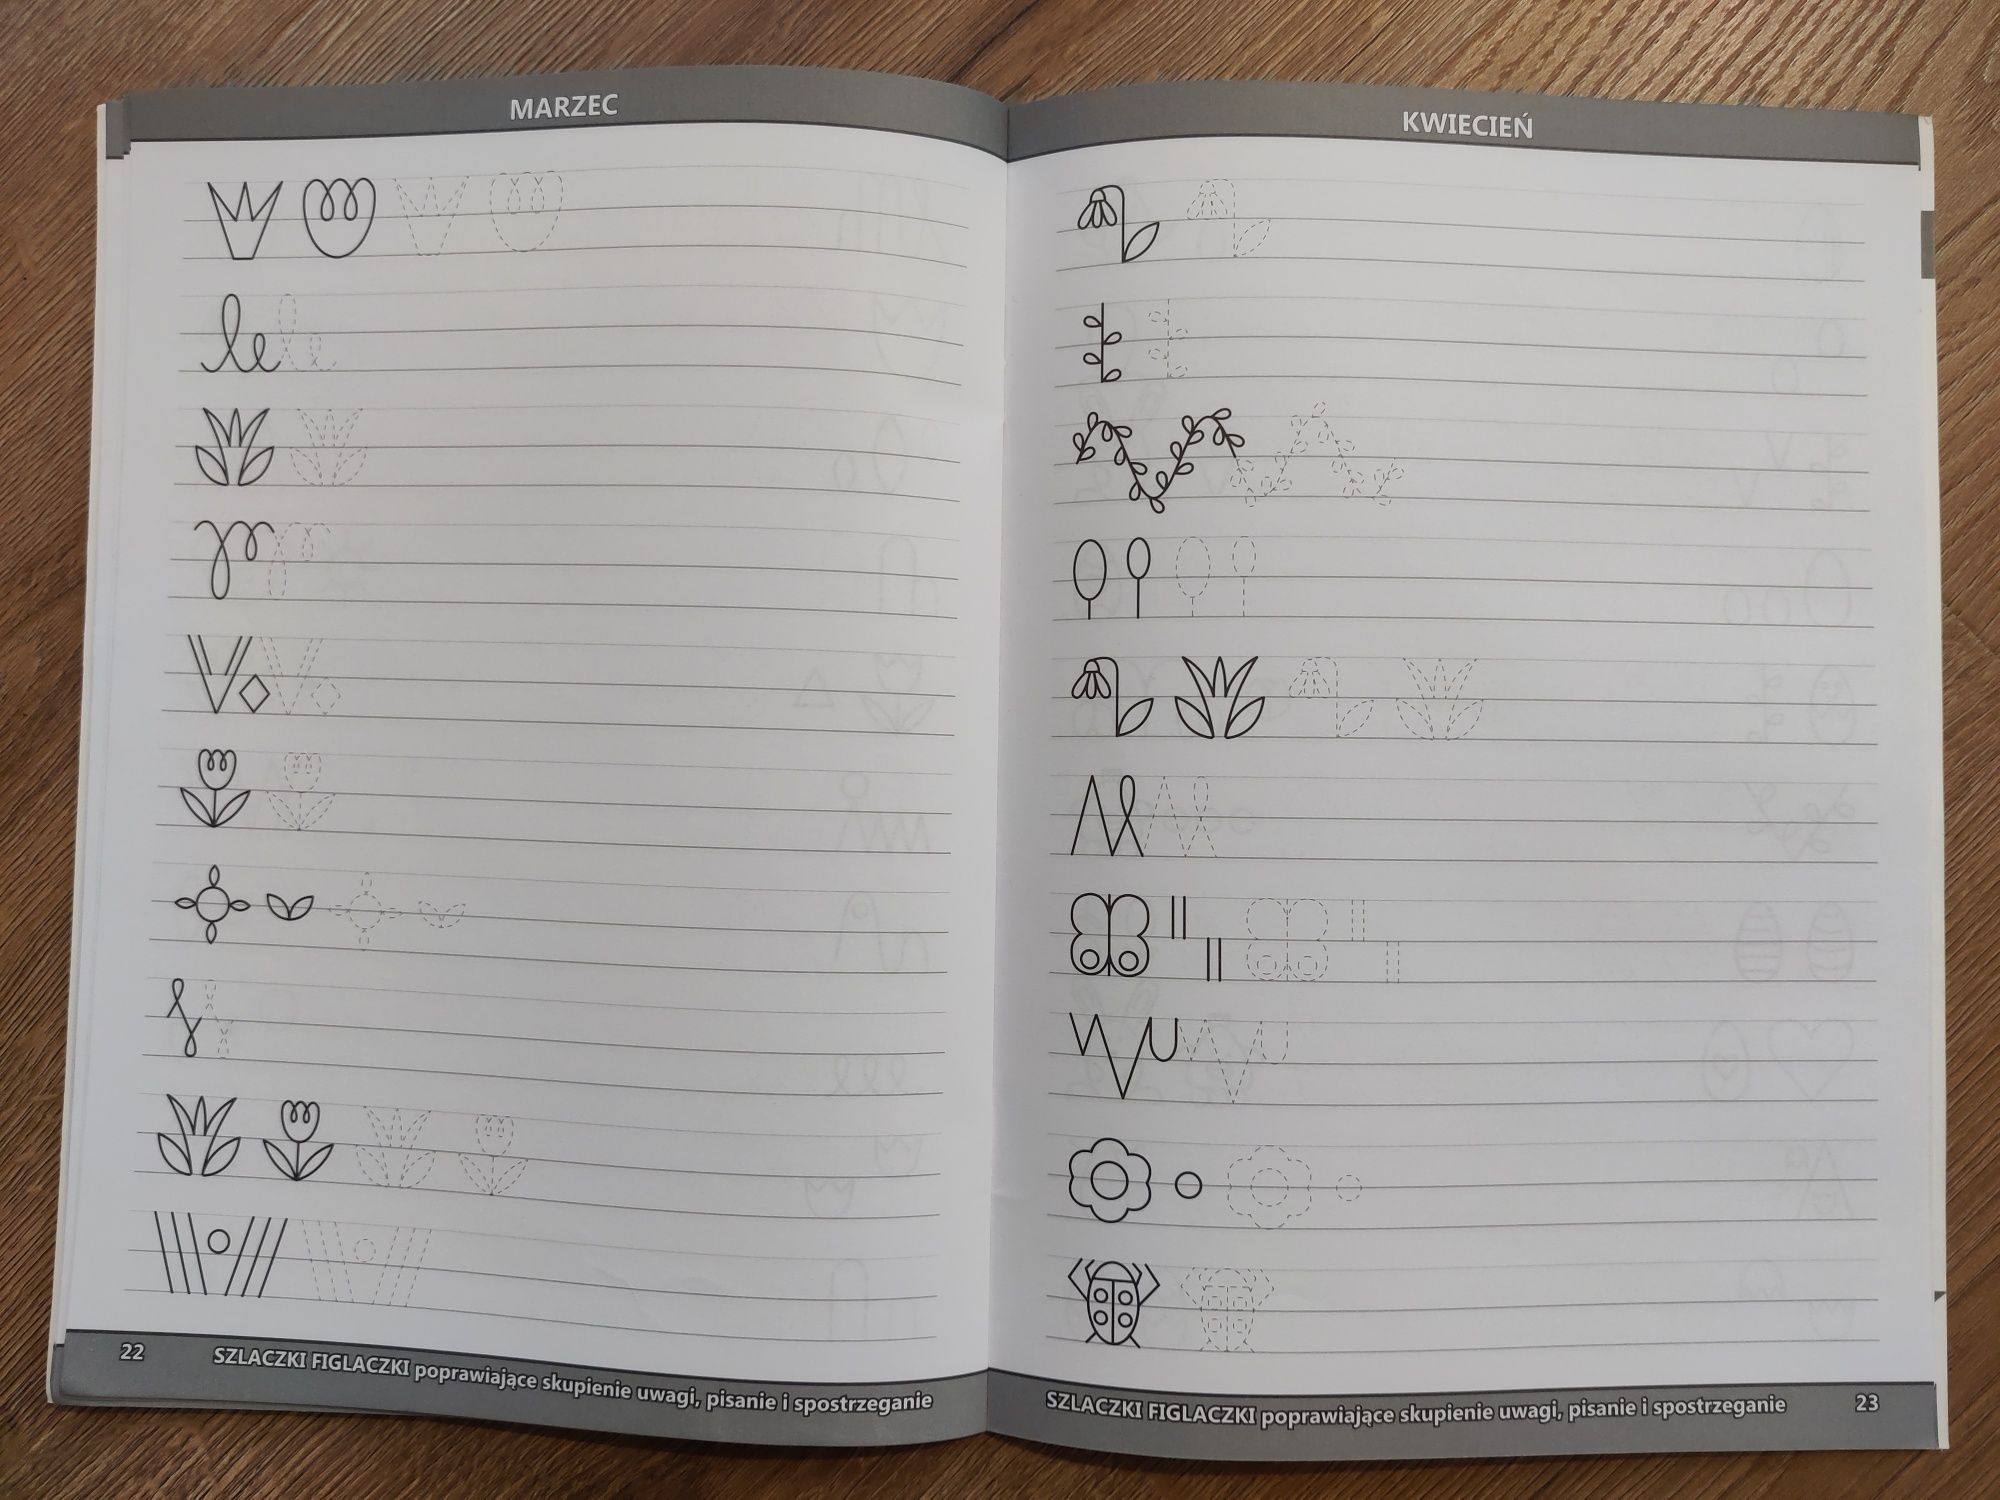 MARZEC
22
SZLACZKI FIGLACZKI poprawiające skupienie uwagi, pisanie i spostrzeganie
KWIECIEŃ
SZLACZKI FIGLACZKI poprawiające skupienie uwagi, pisanie i spostrzeganie
23